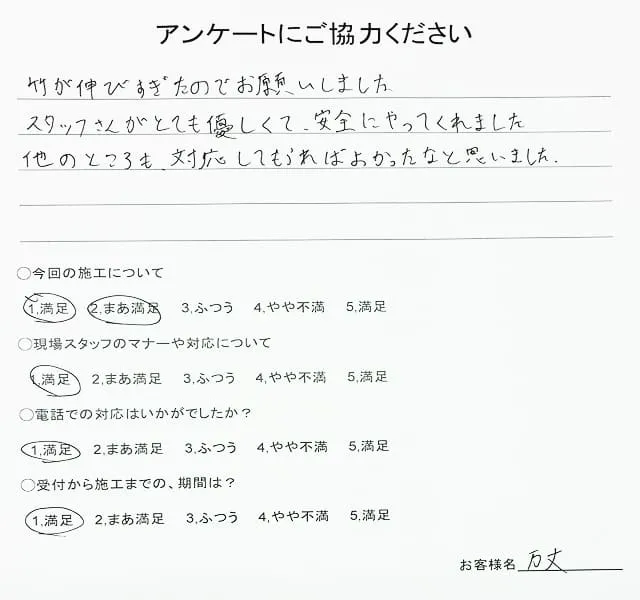 アンケートにご協力ください
竹が伸びすぎたのでお願いしました
スタッフさんがとても優しくて、安全にやってくれました
他のところも、対応してもらればよかったなと思いました.
○今回の施工について
1,満足 2,まあ満足 3,ふつう 4,やや不満 5,満足
○現場スタッフのマナーや対応について
1,満足 2,まあ満足 3,ふつう 4,やや不満 5,満足
○電話での対応はいかがでしたか？
1,満足 2,まあ満足 3,ふつう 4,やや不満 5,満足
○受付から施工までの、期間は？
1,満足 2,まあ満足 3,ふつう 4,やや不満 5,満足
お客様名 万丈